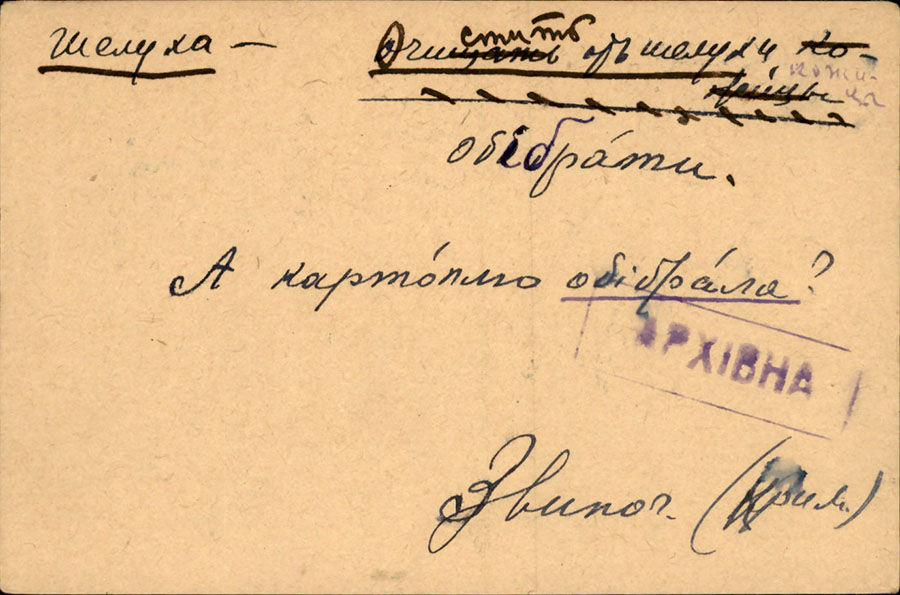 Шелуха — Очистить отъ шелухи
кожи-
цы
обібра́ти.
А карто́плю обібра́ла?
АРХІВНА
Звиног. (Крим.)